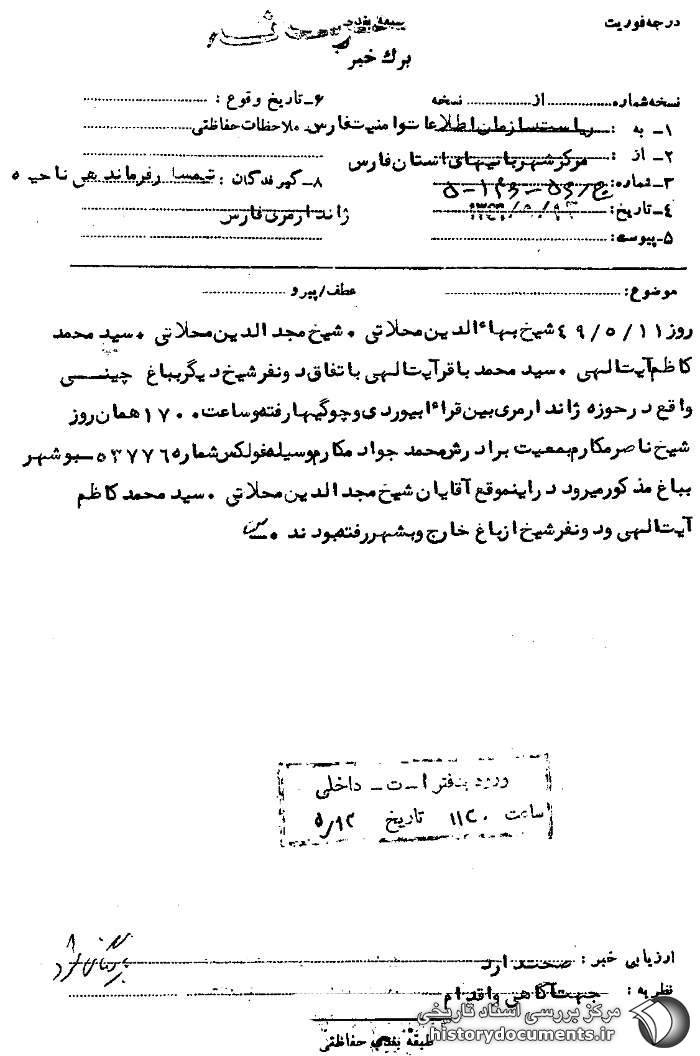 درجه فوریت
طبقه بندی
برگ خبر
نسخه شماره ........ از ........ نسخه
۶ـ تاریخ وقوع :
۱ـ به : ریاست سازمان اطلاعات و امنیت فارس
ملاحظات حفاظتی
۲ـ از : مرکز شهربانیهای استان فارس
۳ـ شماره:
۸ـ گیرندگان : تیمسار فرماندهی ناحیه ۵
ژاندارمری فارس
۴ـ تاریخ:
۵ـ پیوست:
موضوع:
عطف/پیرو
روز ۴۹/۵/۱۱ شیخ بهاءالدین محلاتی ۰ شیخ مجدالدین محلاتی ۰ سید محمد
کاظم آیت الهی ۰ سید محمد باقر آیت الهی باتفاق دو نفر شیخ دیگر بباغ چینی
واقع در حوزه ژاندارمری بین قراء ابیوردی و چوگیها رفته و ساعت ۱۷۰۰ همان روز
شیخ ناصر مکارم بمعیت برادرش محمد جواد مکارم وسیله فولکس شماره ۵۳۷۷۶ ـ بوشهر
بباغ مذکور میرود در اینموقع آقایان شیخ مجدالدین محلاتی ۰ سید محمد کاظم
آیت الهی و دو نفر شیخ از باغ خارج و بشهر رفته بودند ۰
ورود بدفتر ا ـ ت ـ داخلی
ساعت ۱۱۲۰ تاریخ ۵/۱۲
ارزیابی خبر : صحت دارد
نظریه : جهت آگاهی و اقدام
طبقه بندی حفاظتی
مرکز بررسی اسناد تاریخی
historydocuments.ir